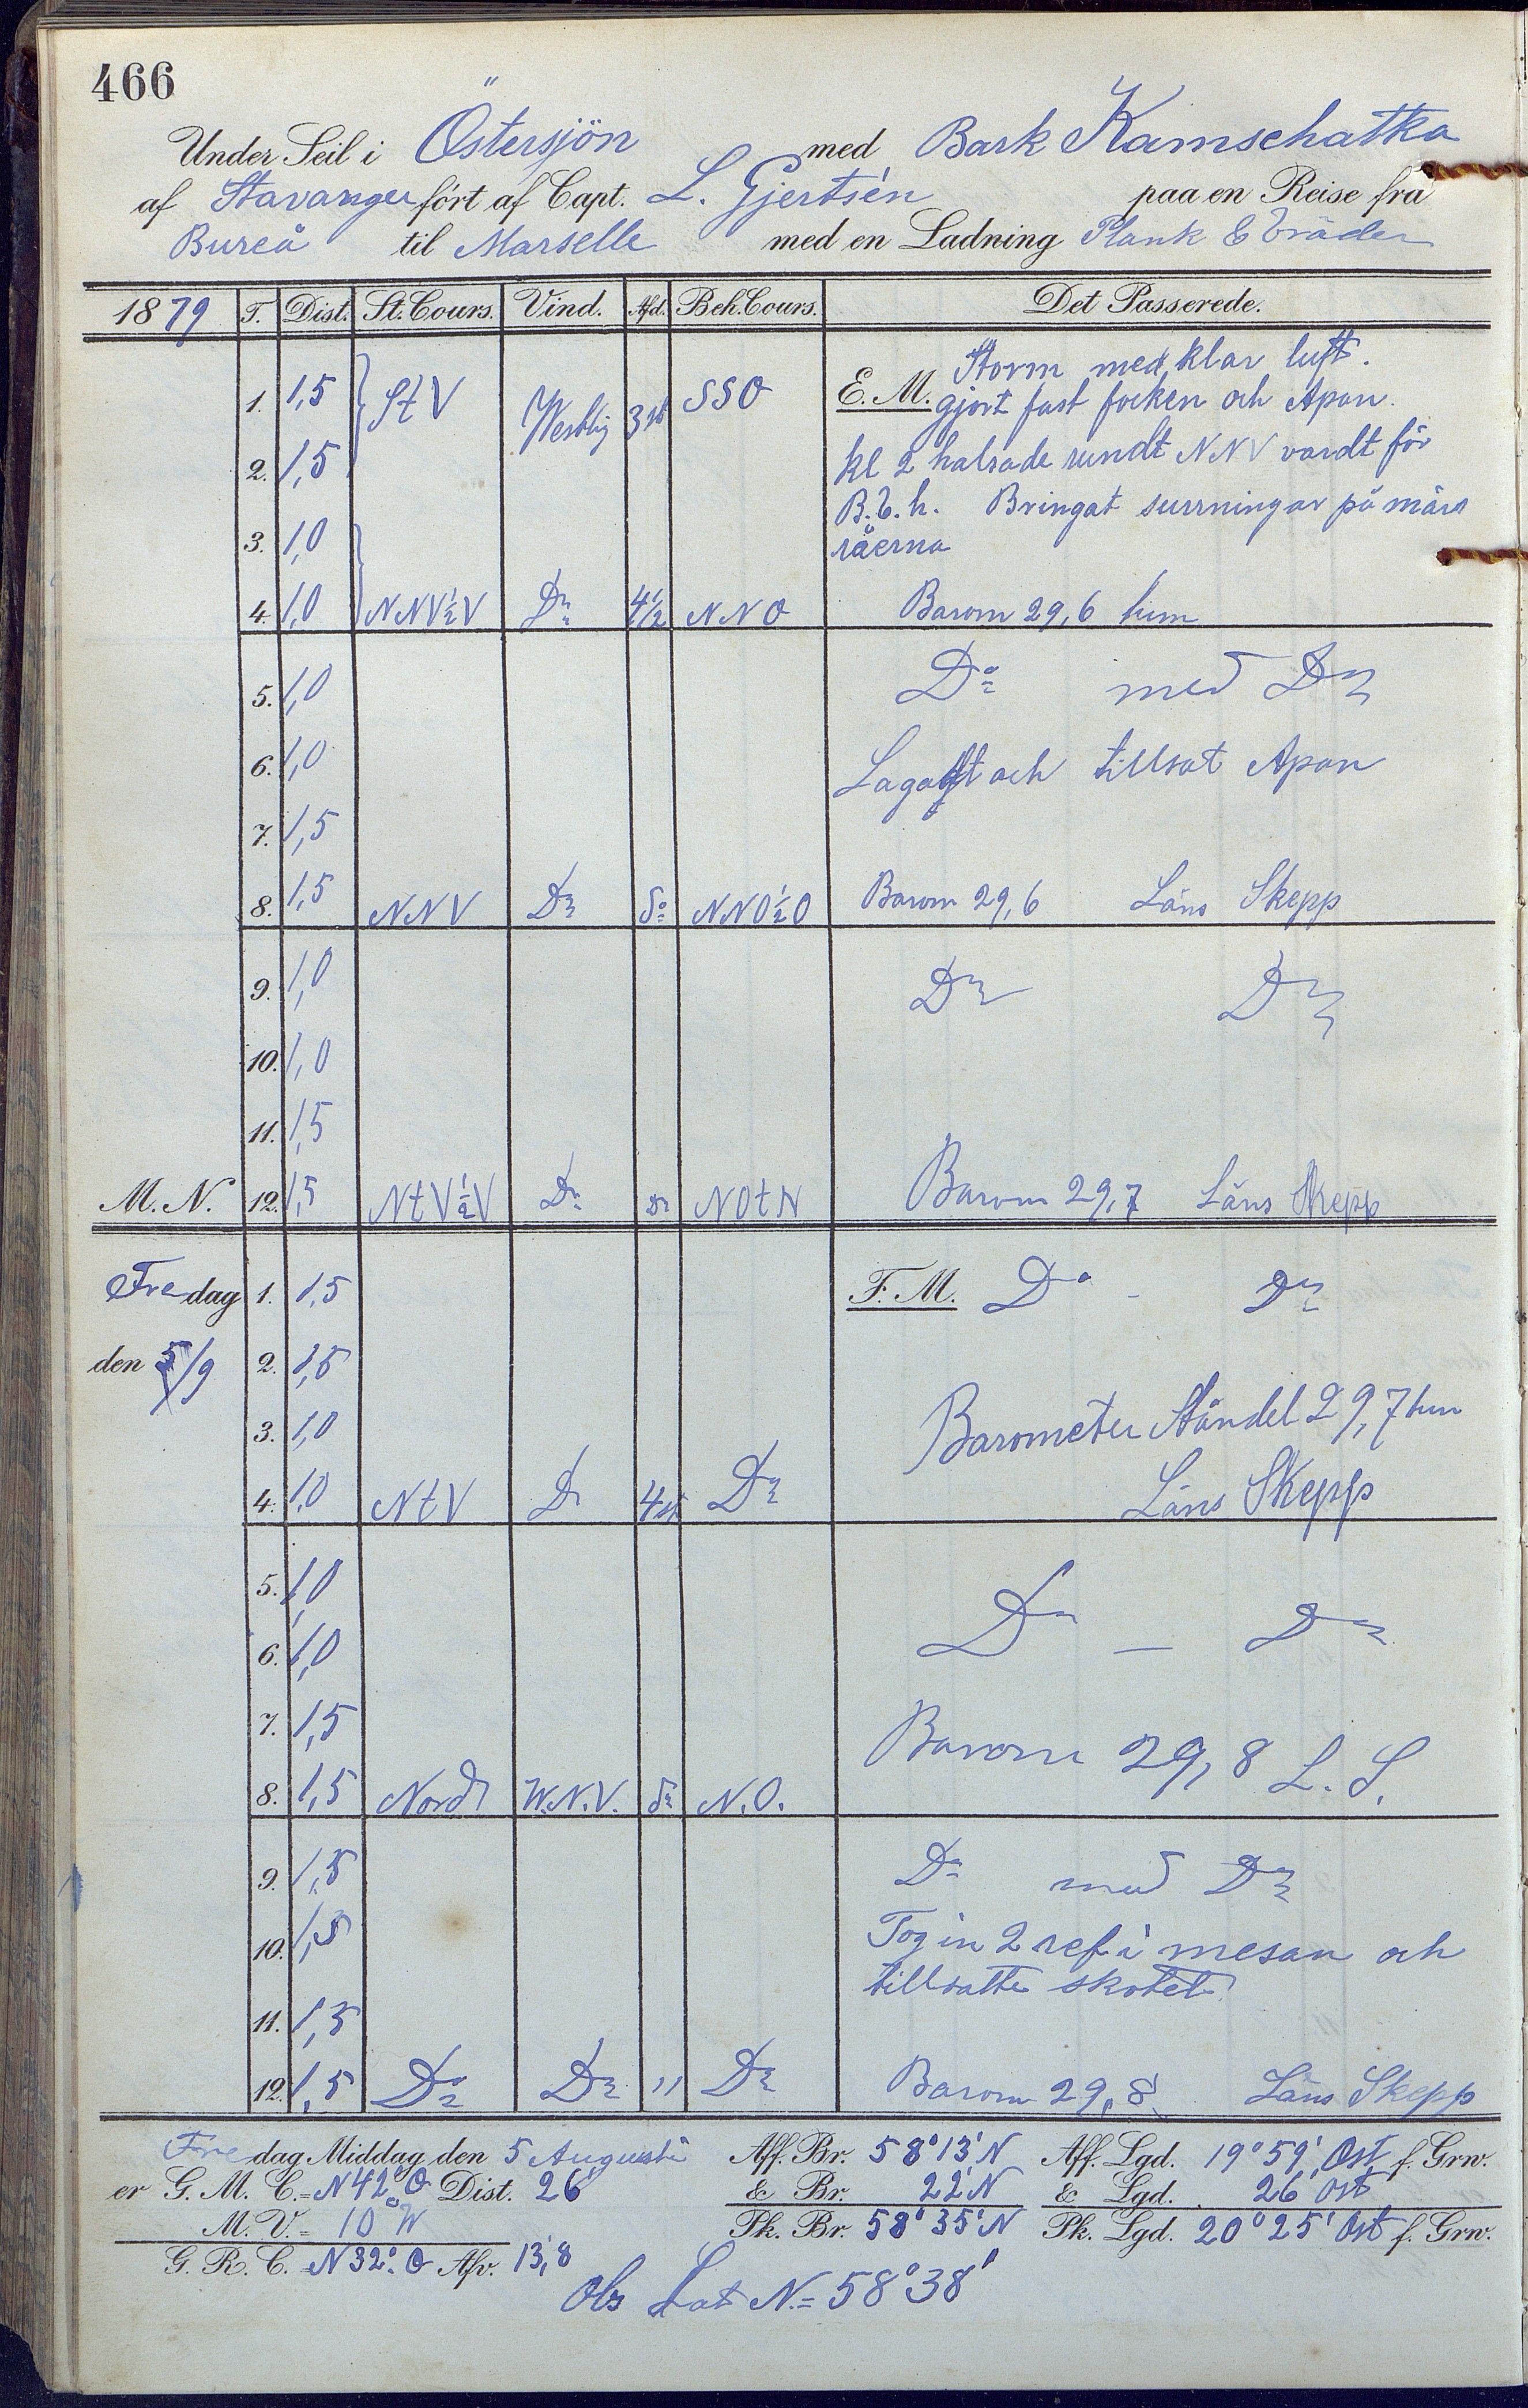 466
Under Seil i Östersjön med Bark Kamschatka
af Stavanger fört af Capt. L. Gjertsén paa en Reise fra
Bureå til Marselle med en Ladning Plank & Bräder
1879 T. Dist. St. Cours. Vind. Afd. Beh. Cours. Det Passerede.
Storm med klar luft.
1. 1,5 StV Westlig 3 st SSO E. M. gjort fast focken och Apan.
2. 1,5 kl 2 halsade rundt NNV vardt för
B.b.h. Bringat surrningar på märs
3. 1,0 råerna
4. 1,0 NNV½V Do 4½ NNO Barom 29,6 tum
5. 1,0 Do med Do
6. 1,0 Lagat och tillsat Apan
7. 1,5
8. 1,5 NNV Do do NNO½O Barom 29,6 Läns Skepp
9. 1,0 Do Do
10. 1,0
11. 1,5
M. N. 12. 1,5 NtV½V Do Do NOtN Barom 29,7 Läns Skepp
Fredag 1. 1,5 F. M. Do - Do
den 5/9 2. 1,5
3. 1,0 Barometer Ståndet 29,7 tum
4. 1,0 NtV Do 4 st Do Läns Skepp
5. 1,0 Do — Do
6. 1,0
7. 1,5 Barom 29,8 L. S.
8. 1,5 Nord W.N.V. do N.O.
9. 1,5 Do med Do
10. 1,5 Tog in 2 ref i mesan och
tillsatte skotet
11. 1,5
12. 1,5 Do Do " Do Barom 29,8 Läns Skepp
Fredag Middag den 5 Augusti Aff. Br. 58° 13' N Aff. Lgd. 19° 59' Ost f. Grw.
er G. M. C. = N 42° O Dist. 26' & Br. 22' N & Lgd. 26' Ost
M. V. = 10° W Pk. Br. 58° 35' N Pk. Lgd. 20° 25' Ost f. Grw.
G. R. C. N 32° O Afv. 13,8
Obs Lat N. = 58° 38'